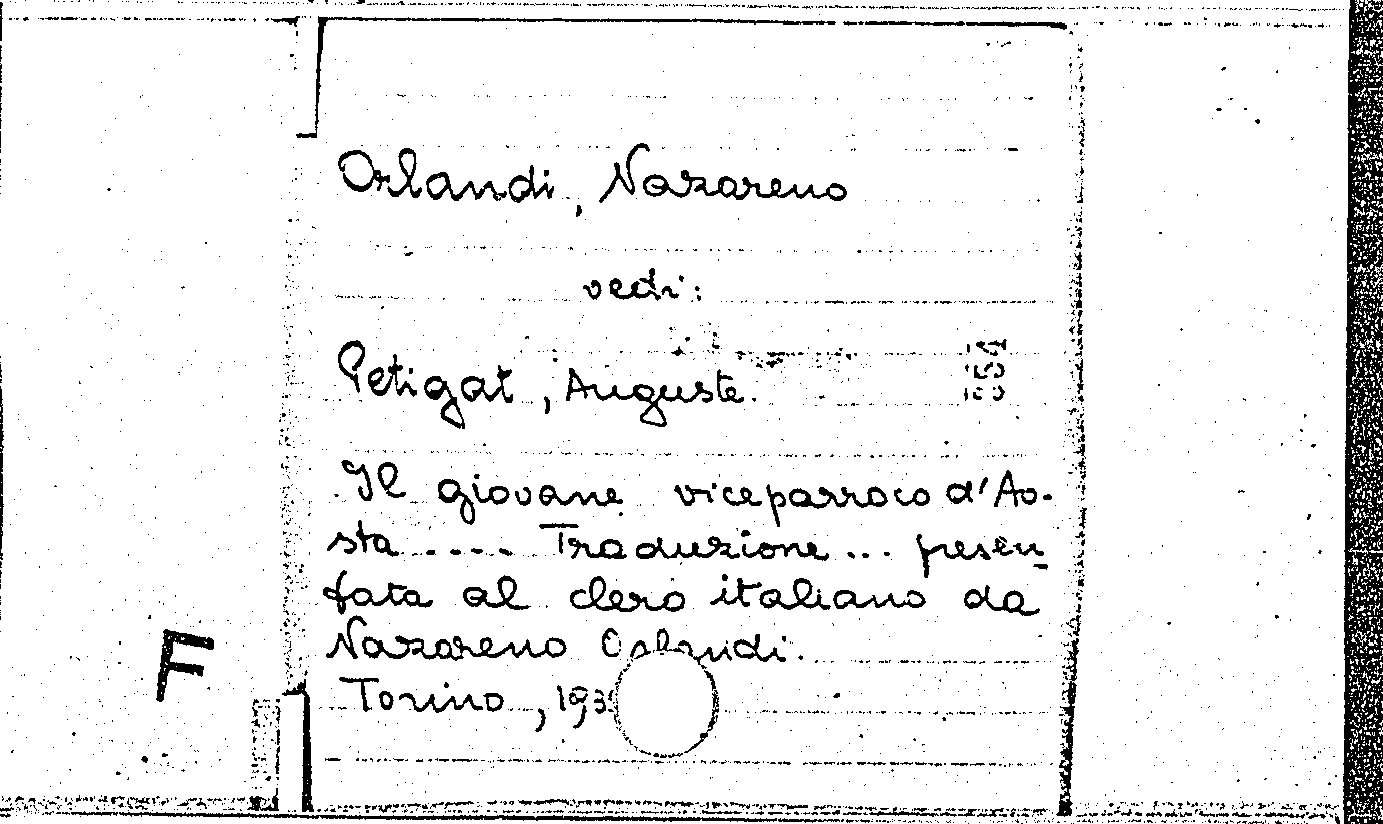 Orlandi, Nazareno
vedi:
Petigat, Auguste.
Il giovane viceparroco d'Ao-
sta .... Traduzione ... presen-
tata al clero italiano da
Nazareno Orlandi.
Torino, 193
F